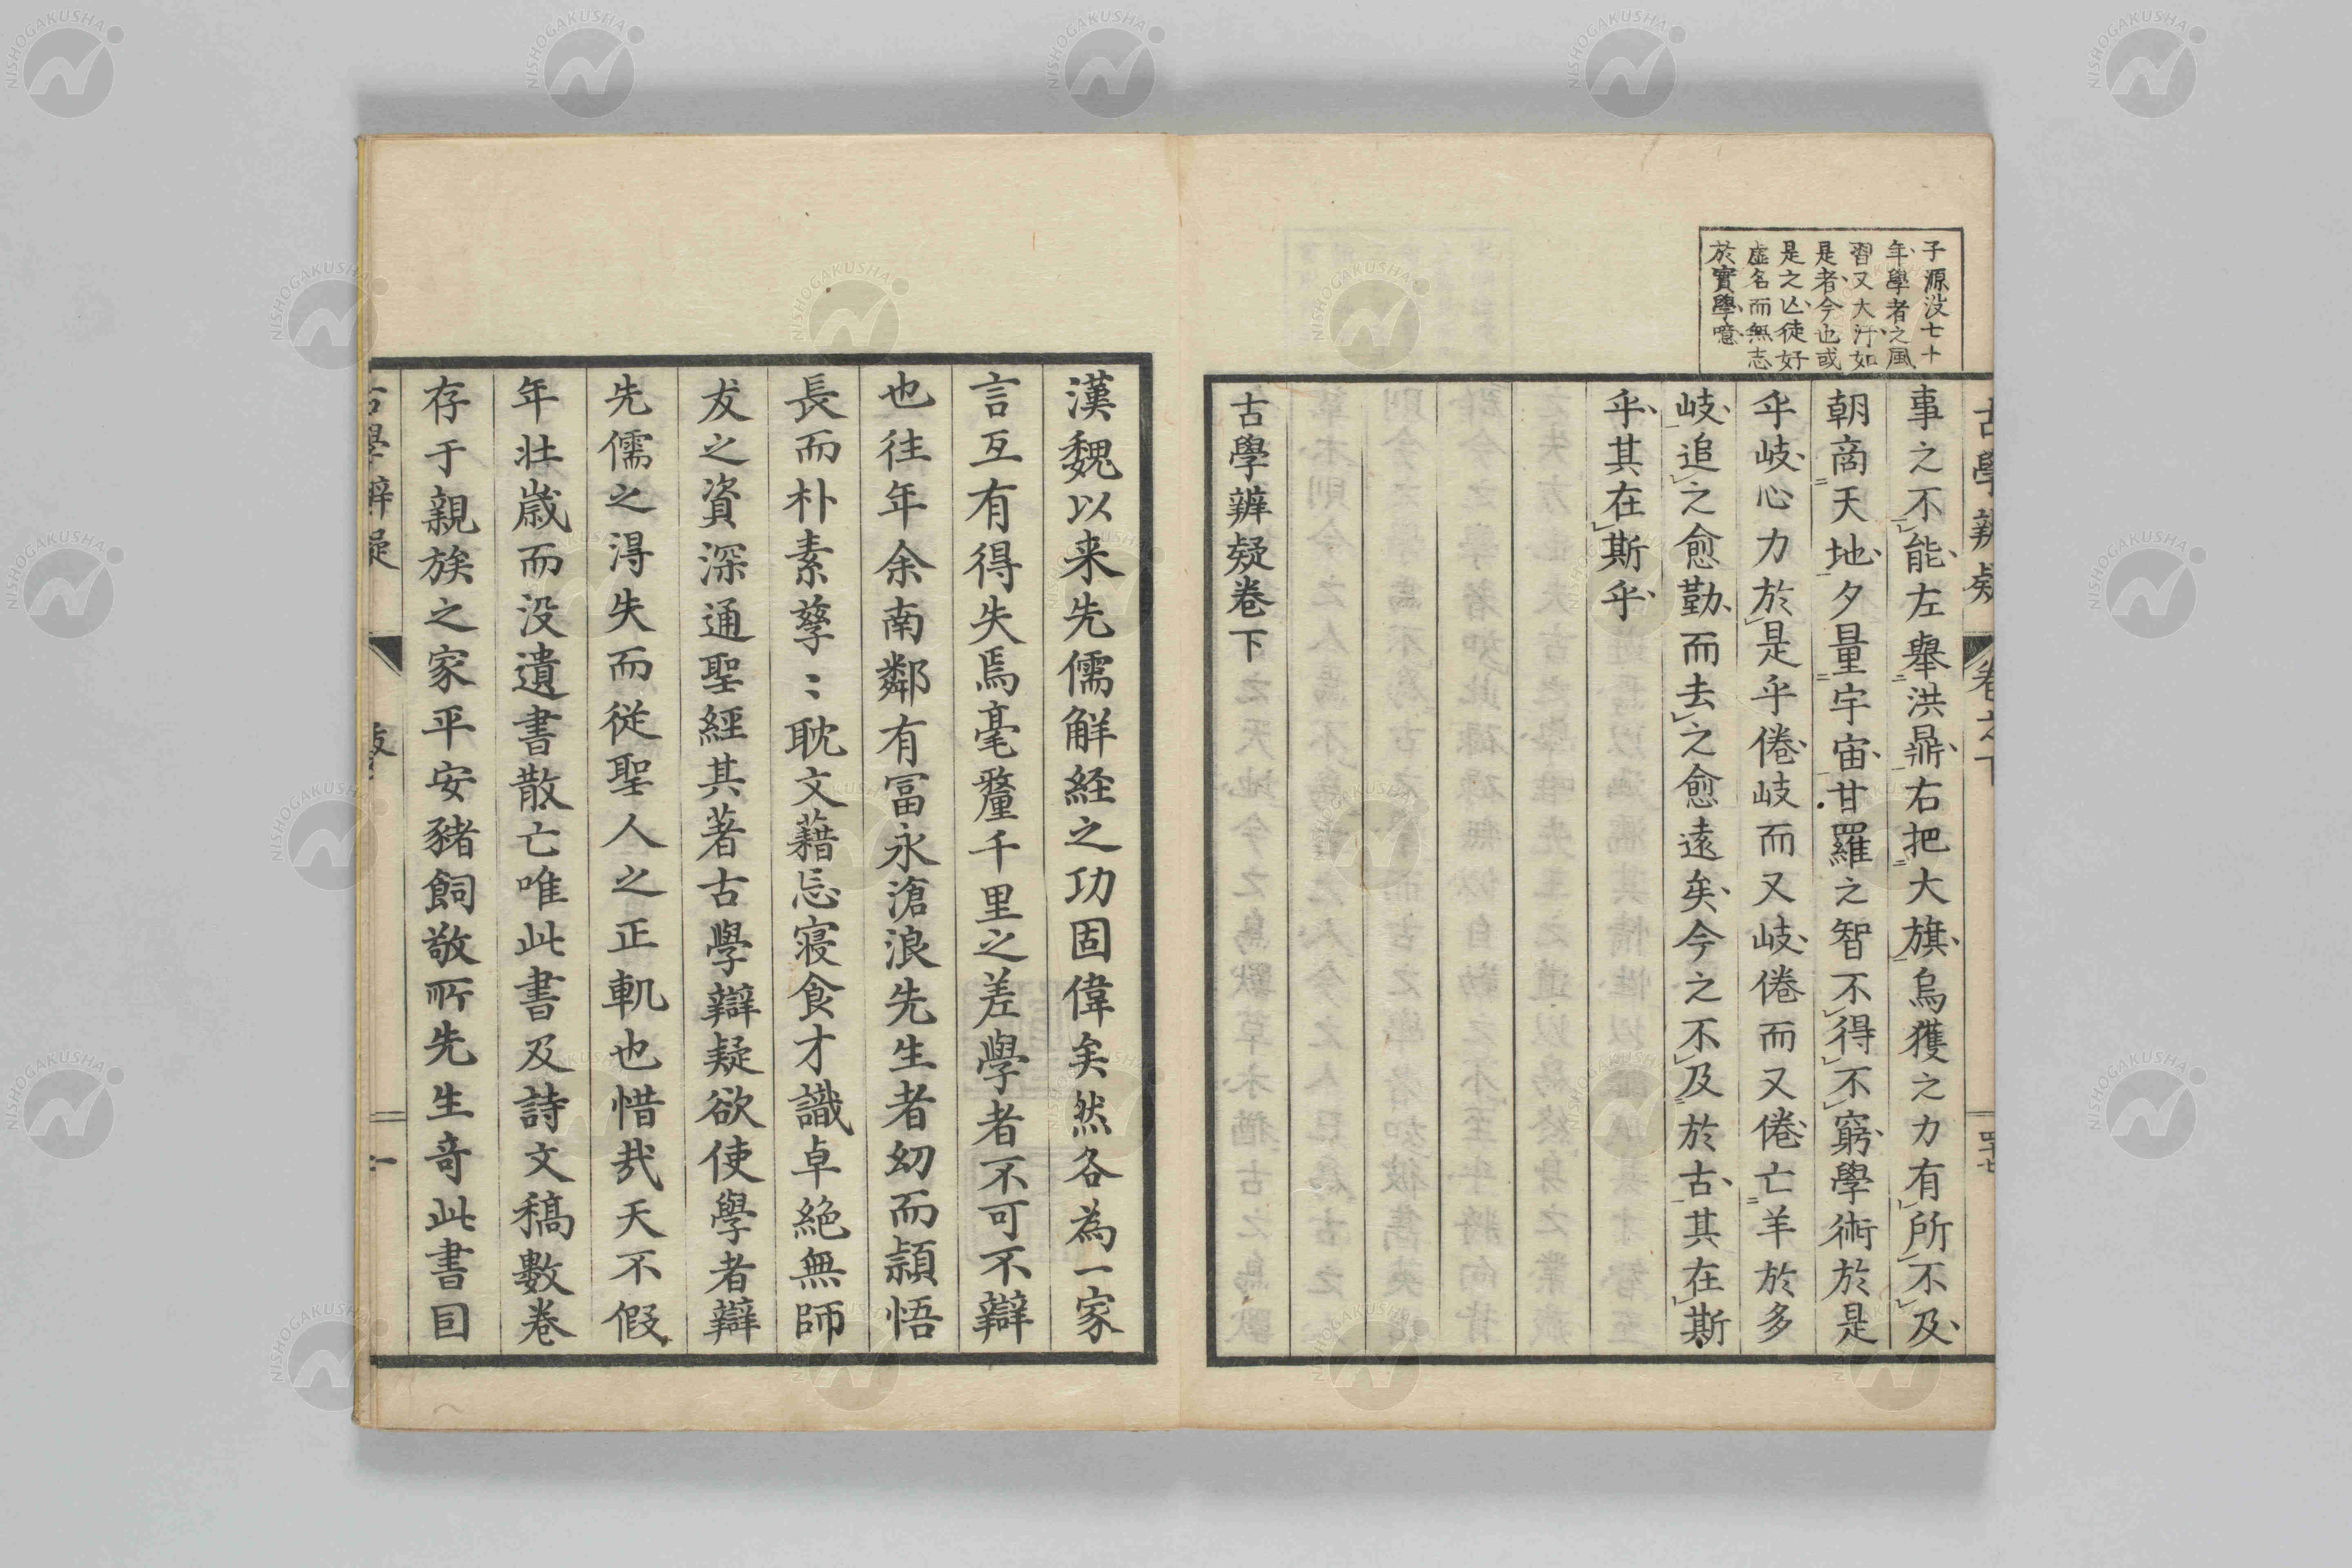 子源没七十
年學者之風
習又大汙如
是者今也或
是之亾徒好
虚名而無志
於實學噫
古學辨疑
卷之下
四十七
事之不能左舉洪鼎右把大旗烏獲之力有所不及
朝商天地夕量宇宙甘羅之智不得不窮學術於是
乎岐心力於是乎倦岐而又岐倦而又倦亡羊於多
岐追之愈勤而去之愈遠矣今之不及於古其在斯
乎其在斯乎
古學辨疑卷下
漢魏以来先儒解経之功固偉矣然各為一家
言互有得失焉毫釐千里之差學者不可不辯
也往年余南鄰有冨永滄浪先生者幼而頴悟
長而朴素孳〻耽文藉忘寝食才識卓絶無師
友之資深通聖經其著古學辯疑欲使學者辯
先儒之淂失而従聖人之正軌也惜哉天不假
年壮歳而没遺書散亡唯此書及詩文稿數巻
存于親族之家平安豬飼敬所先生竒此書囙
古學辨疑
跋
一
NISHOGAKUSHA